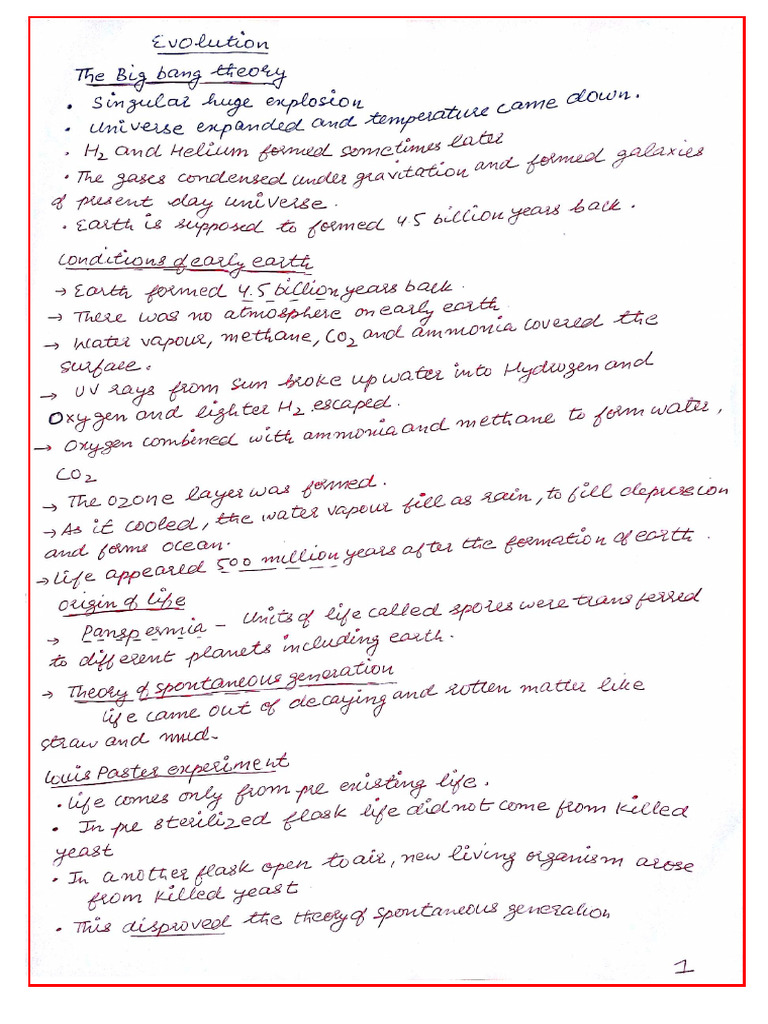 Evolution
The Big bang theory
• Singular huge explosion
• Universe expanded and temperature came down.
• H2 and Helium formed sometimes later
• The gases condensed under gravitation and formed galaxies
of present day universe.
• Earth is supposed to formed 4.5 billion years back.
Conditions of early earth
→ Earth formed 4.5 billion years back.
→ There was no atmosphere on early earth
→ Water vapour, methane, CO2 and ammonia covered the
surface.
→ UV rays from Sun broke up water into Hydrogen and
Oxygen and lighter H2 escaped.
→ Oxygen combined with ammonia and methane to form water,
CO2
→ The Ozone layer was formed.
→ As it cooled, the water vapour fill as rain, to fill depression
and forms ocean.
→ Life appeared 500 million years after the formation of earth.
Origin of life
→ Panspermia – Units of life called spores were transferred
to different planets including earth.
→ Theory of spontaneous generation
life came out of decaying and rotten matter like
straw and mud.
Louis Paster experiment
• Life comes only from pre existing life.
• In pre sterilized flask life did not come from killed
yeast
• In another flask open to air, new living organism arose
from killed yeast
• This disproved the theory of spontaneous generation
1